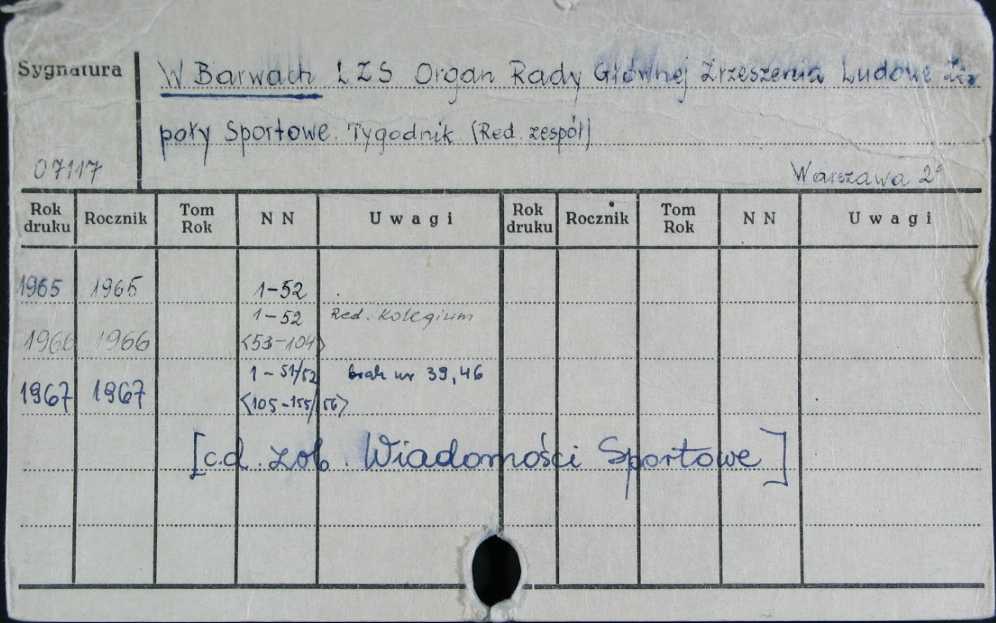 Sygnatura
W Barwach LZS Organ Rady Głównej Zrzeszenia Ludowe
poły Sportowe. Tygodnik (Red. zespół)
07117
Warszawa 2°
Rok druku Rocznik Tom Rok NN Uwagi Rok druku Rocznik Tom Rok NN Uwagi
1965 1965 1-52
1-52 Red. Kolegium
1966 1966 <53-104>
1-51/52 brak nr 39,46
1967 1967 <105-155/156>
[c.d. zob. Wiadomości Sportowe]